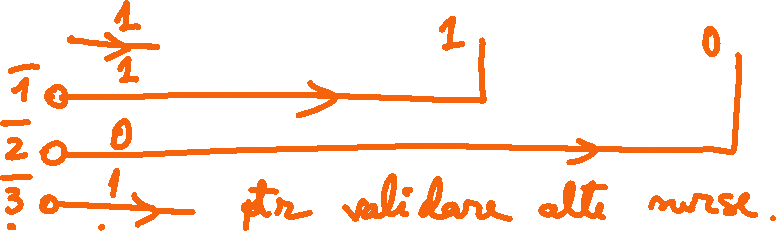 1
1 1 0
1̅
2̅ 0
3̅ 1 ptr validare alte surse.